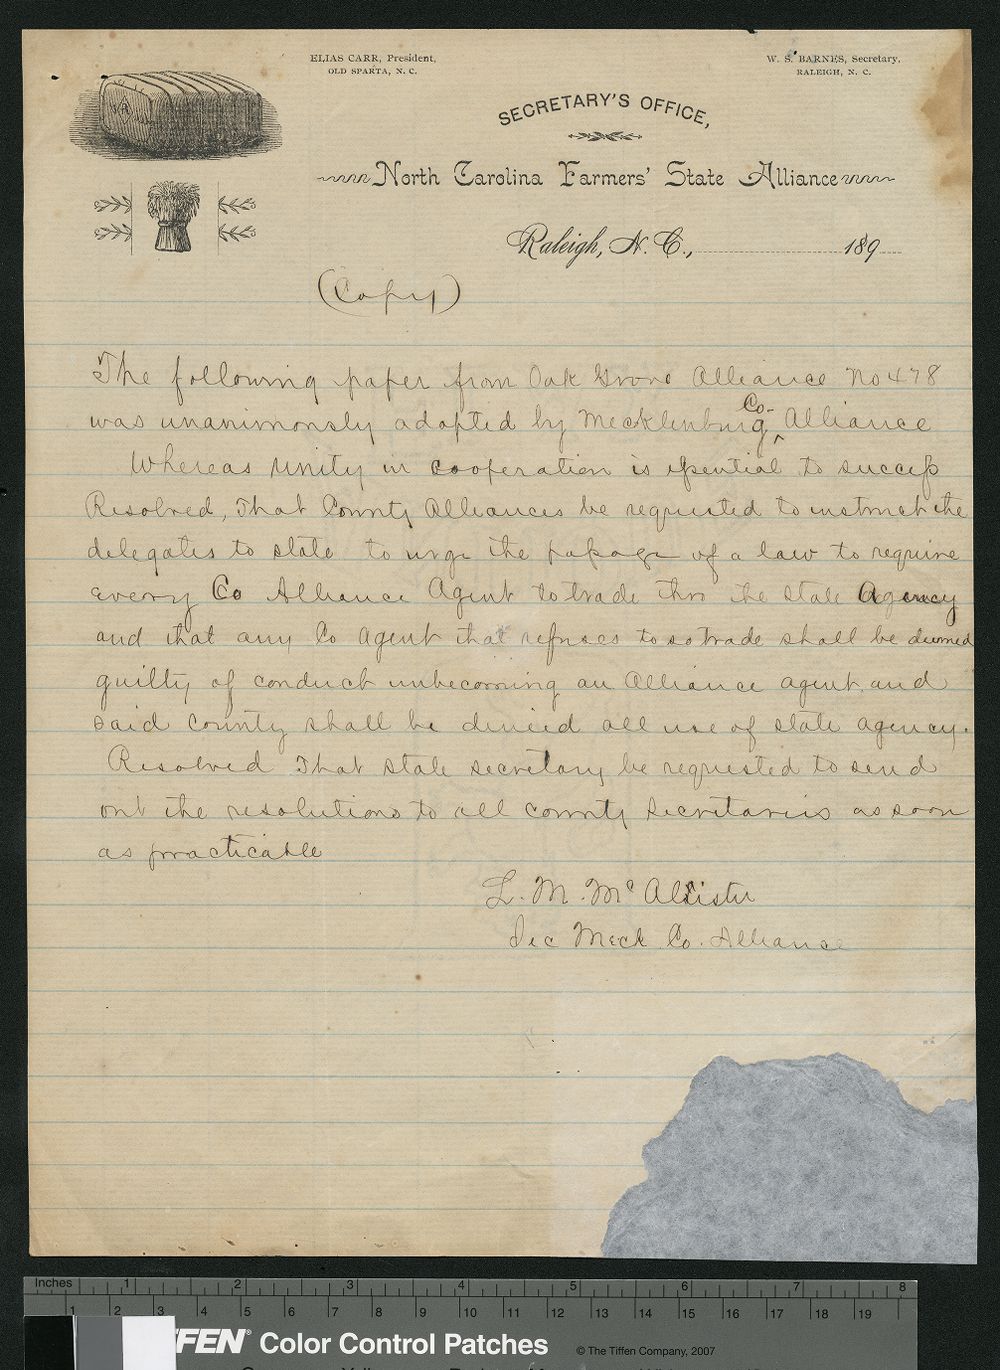 ELIAS CARR, President,
OLD SPARTA, N. C.
W. S. BARNES, Secretary.
RALEIGH, N. C.
SECRETARY'S OFFICE,
North Carolina Farmers' State Alliance
Raleigh, N. C., 189
(Copy)
The following paper from Oak Grove Alliance No 478
was unanimously adopted by Mecklenburg Co- Alliance
Whereas Unity in cooperation is essential to success
Resolved, That County Alliances be requested to instruct the
delegates to state to urge the passage of a law to require
every Co Alliance Agent to trade thro the state Agency
and that any Co Agent that refuses to so trade shall be deemed
guilty of conduct unbecoming an Alliance agent and
said County shall be denied all use of state agency.
Resolved That state secretary be requested to send
out the resolutions to all county secretaries as soon
as practicable
L. M. McAllister
Sec Meck Co. Alliance
Inches 1 2 3 4 5 6 7 8
1 2 3 4 5 6 7 8 9 10 11 12 13 14 15 16 17 18 19
FFEN® Color Control Patches © The Tiffen Company, 2007